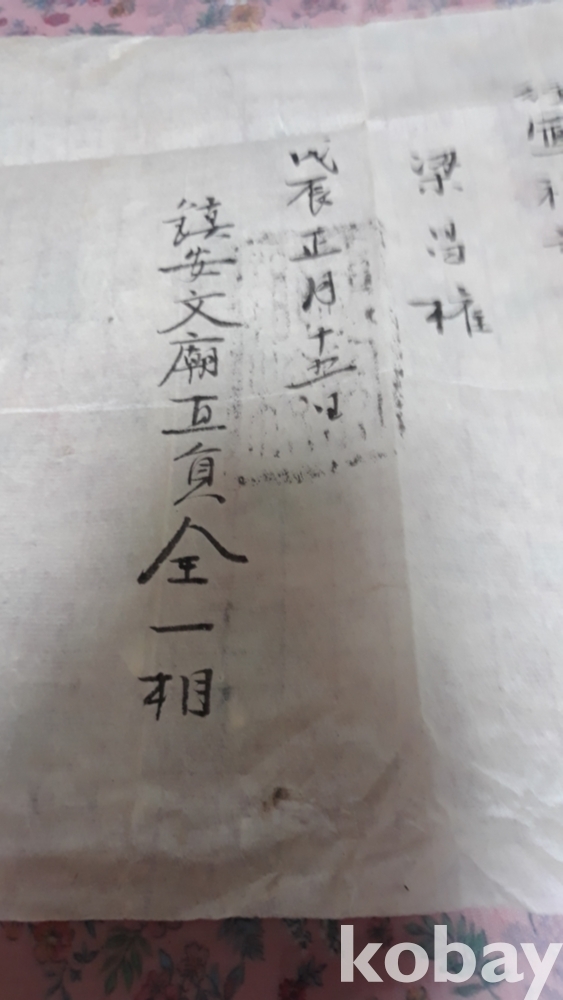 梁昌權
戊辰正月十五日
鎮安文廟直員全一相
kobay